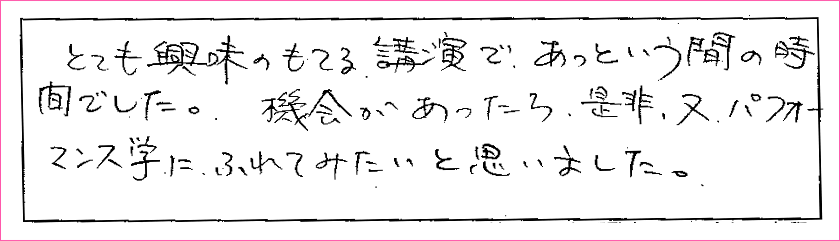 とても興味のもてる講演で、あっという間の時
間でした。 機会があったら、是非、又、パフォー
マンス学に、ふれてみたいと思いました。